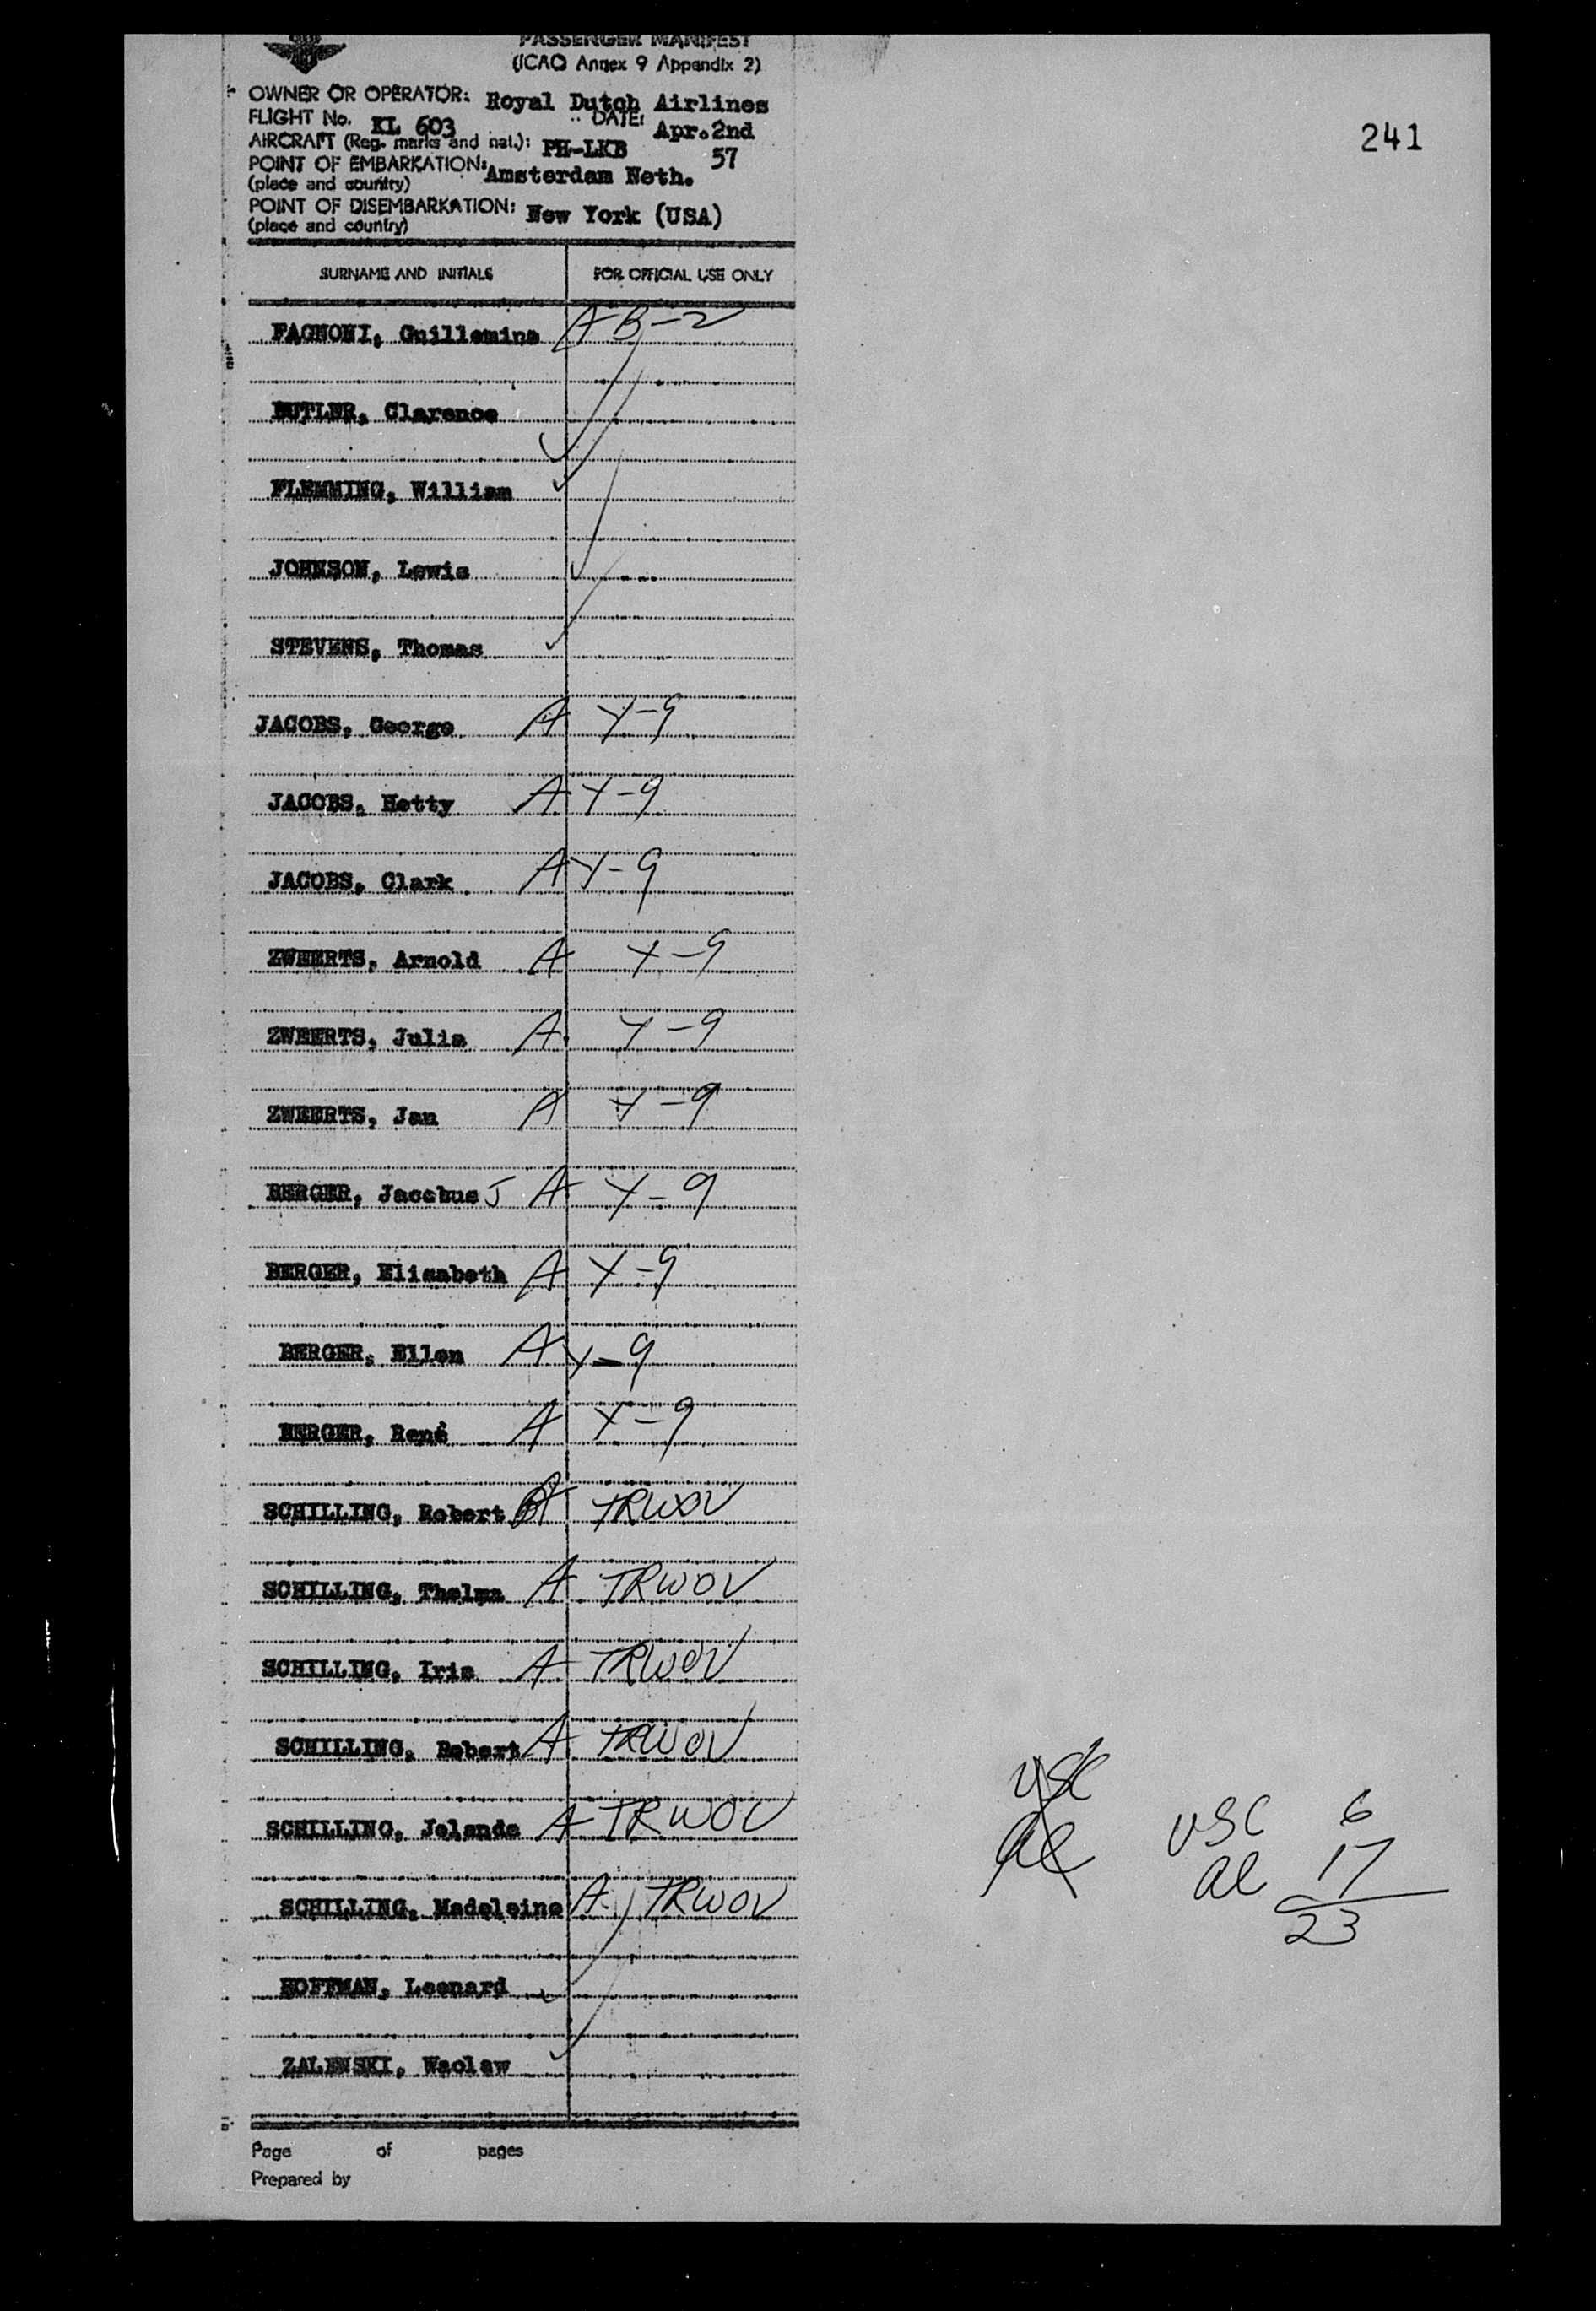 PASSENGER MANIFEST
(ICAO Annex 9 Appendix 2)
OWNER OR OPERATOR: Royal Dutch Airlines
FLIGHT No. KL 603 DATE: Apr. 2nd
AIRCRAFT (Reg. marks and nat.): PH-LKB 57
241
POINT OF EMBARKATION: Amsterdam Neth.
(place and country)
POINT OF DISEMBARKATION: New York (USA)
(place and country)
SURNAME AND INITIALS FOR OFFICIAL USE ONLY
FAGNONI, Guillemina A B-2
BUTLER, Clarence
FLEMMING, William
JOHNSON, Lewis
STEVENS, Thomas
JACOBS, George A Y-9
JACOBS, Hetty A Y-9
JACOBS, Clark A Y-9
ZWEERTS, Arnold A Y-9
ZWEERTS, Julia A Y-9
ZWEERTS, Jan A Y-9
BERGER, Jacobus J A Y-9
BERGER, Elisabeth A Y-9
BERGER, Ellen A Y-9
BERGER, René A Y-9
SCHILLING, Robert A TRWOV
SCHILLING, Thelma A TRWOV
SCHILLING, Iris A TRWOV
SCHILLING, Robert A TRWOV
SCHILLING, Jolanda A TRWOV
SCHILLING, Madeleine A TRWOV
HOFFMAN, Leonard
ZALENSKI, Waclaw
USC
al
USC 6
al 17
23
Page of pages
Prepared by